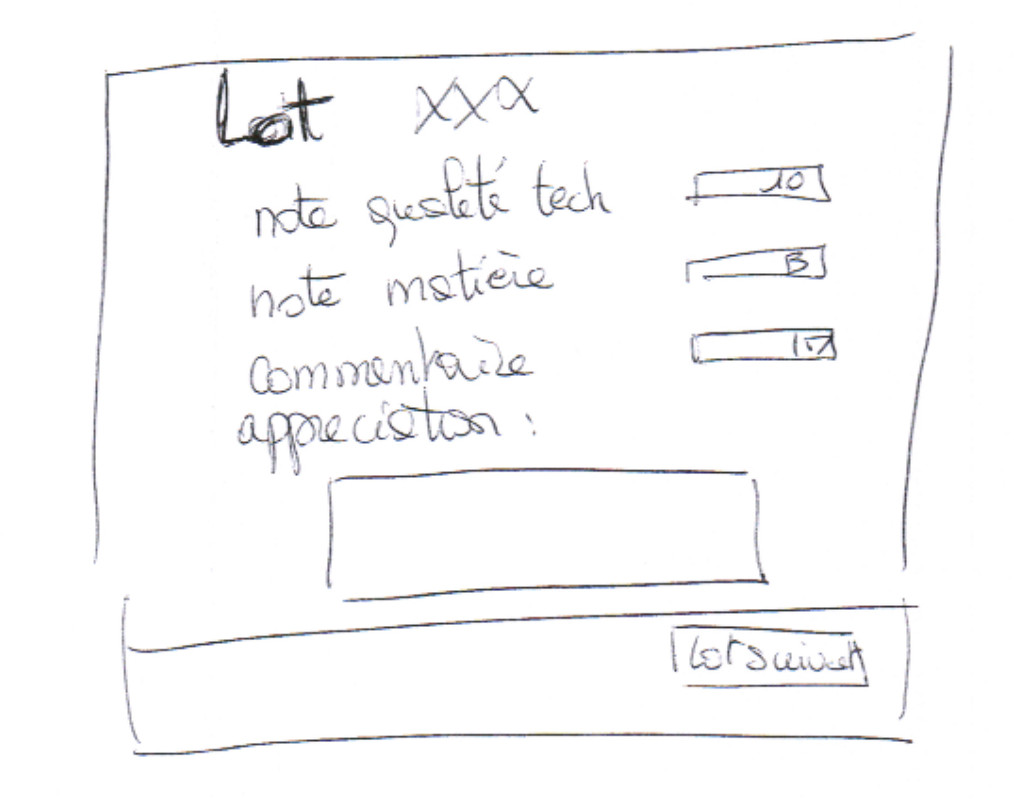 Lot XXX
note qualité tech 10
note matière B
commentaire
appreciation :
Lot suivant